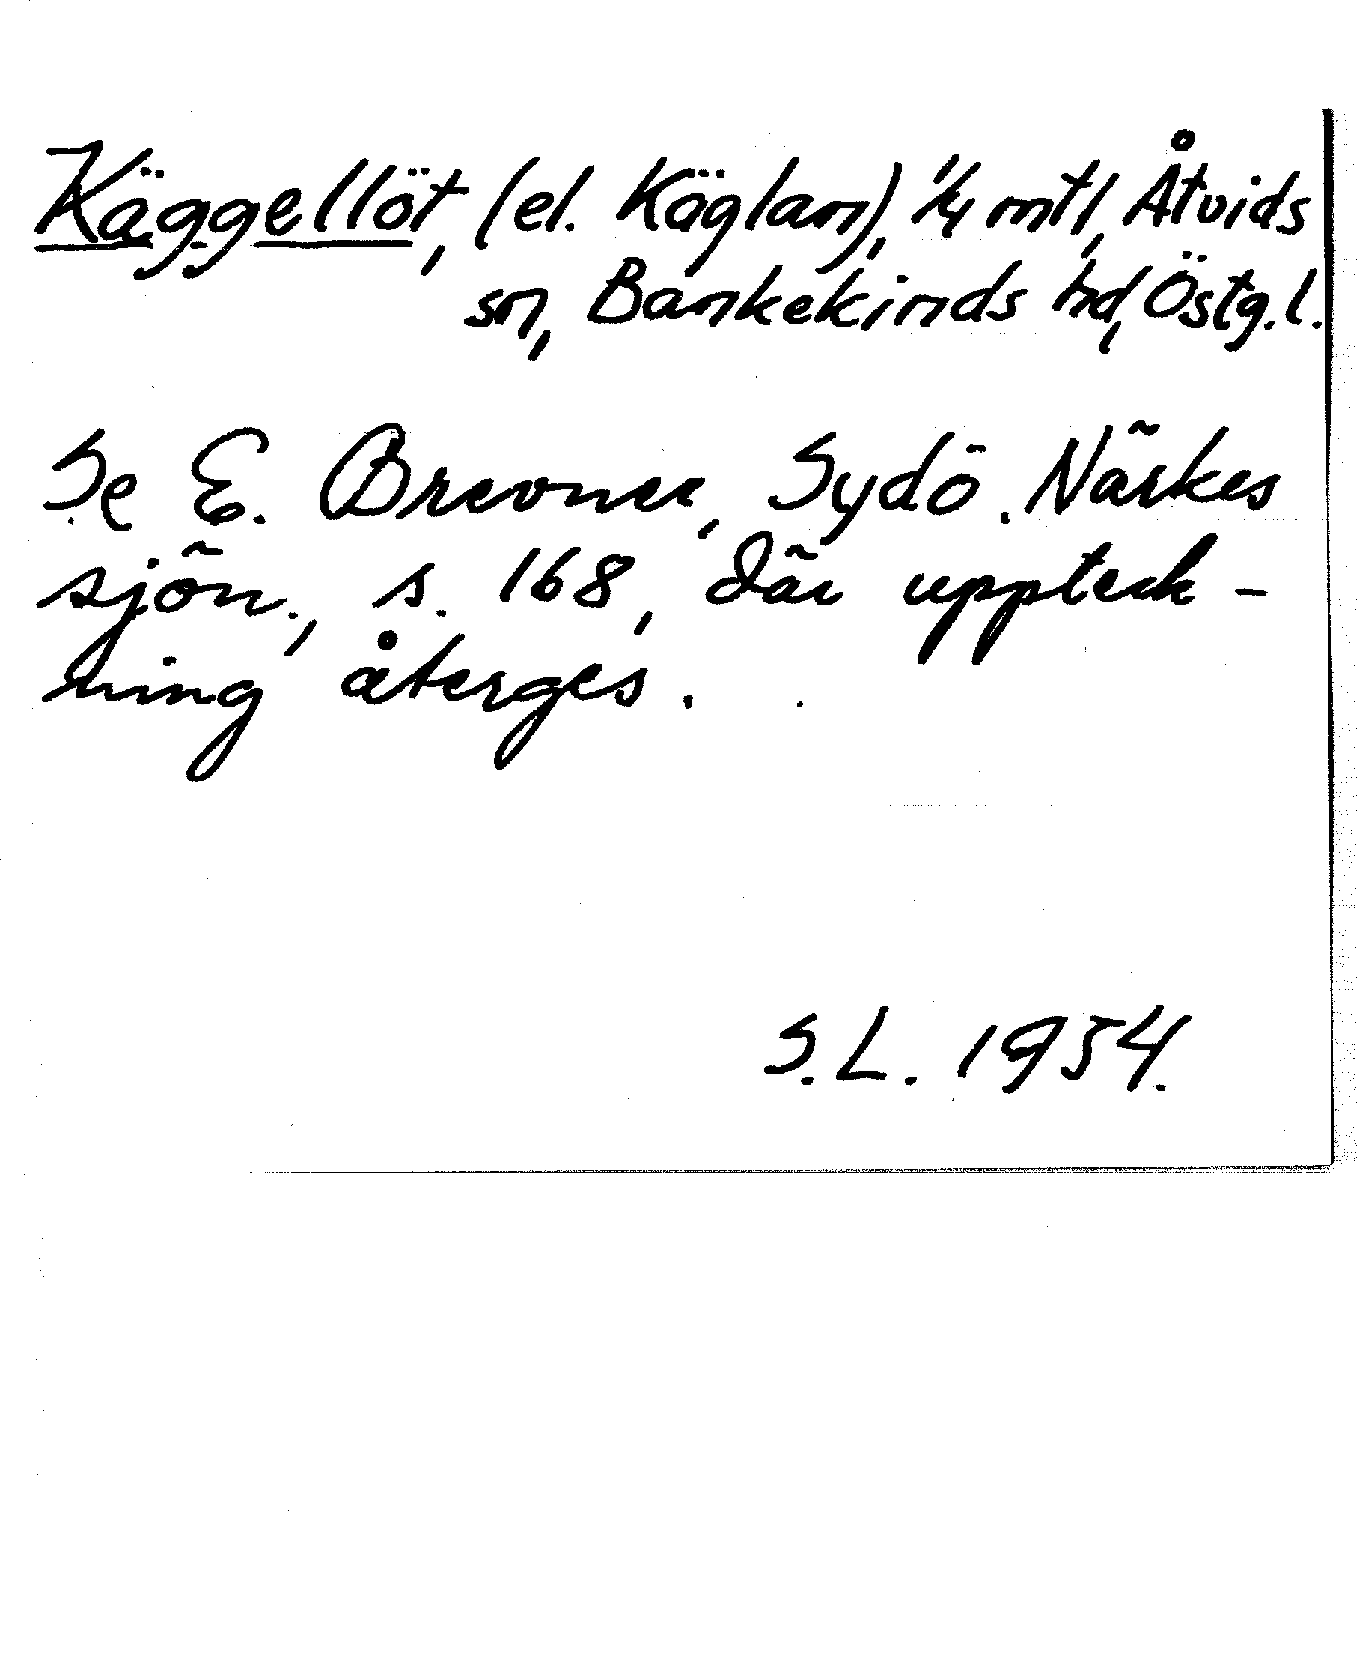 Käggellöt, (el. Käglan), 1/4 mtl, Åtvids
sn, Bankekinds hd, Östg.l.
Se E. Brevner, Sydö. Närkes
sjön., s. 168, där uppteck-
ning återges.
S.L. 1954.